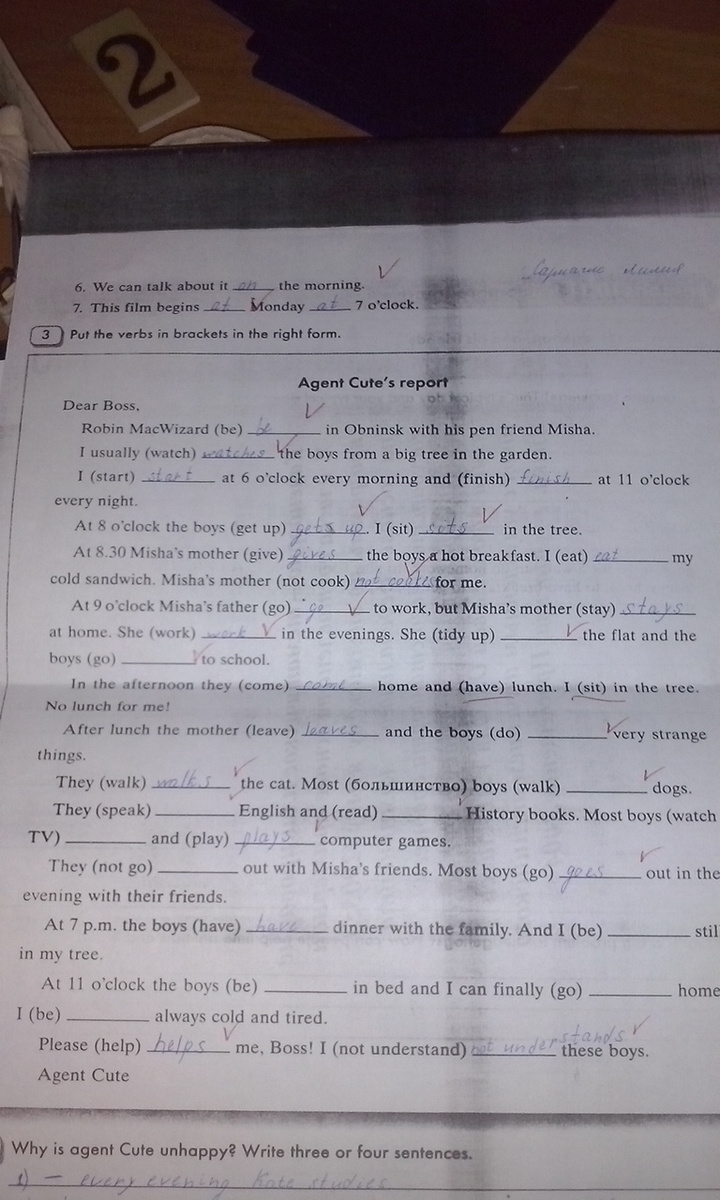 2
Саркагис Лилия
6. We can talk about it on the morning.
7. This film begins at Monday at 7 o'clock.
3 Put the verbs in brackets in the right form.
Agent Cute's report
Dear Boss,
Robin MacWizard (be) be in Obninsk with his pen friend Misha.
I usually (watch) watches the boys from a big tree in the garden.
I (start) start at 6 o'clock every morning and (finish) finish at 11 o'clock
every night.
At 8 o'clock the boys (get up) gets up. I (sit) sits in the tree.
At 8.30 Misha's mother (give) gives the boys a hot breakfast. I (eat) eat my
cold sandwich. Misha's mother (not cook) not cooks for me.
At 9 o'clock Misha's father (go) go to work, but Misha's mother (stay) stays
at home. She (work) work in the evenings. She (tidy up) ______ the flat and the
boys (go) ______ to school.
In the afternoon they (come) come home and (have) lunch. I (sit) in the tree.
No lunch for me!
After lunch the mother (leave) leaves and the boys (do) ______ very strange
things.
They (walk) walks the cat. Most (большинство) boys (walk) ______ dogs.
They (speak) ______ English and (read) ______ History books. Most boys (watch
TV) ______ and (play) plays computer games.
They (not go) ______ out with Misha's friends. Most boys (go) goes out in the
evening with their friends.
At 7 p.m. the boys (have) have dinner with the family. And I (be) ______ stil
in my tree.
At 11 o'clock the boys (be) ______ in bed and I can finally (go) ______ home
I (be) ______ always cold and tired.
Please (help) helps me, Boss! I (not understand) not understands these boys.
Agent Cute
Why is agent Cute unhappy? Write three or four sentences.
1) – every evening Kate studies